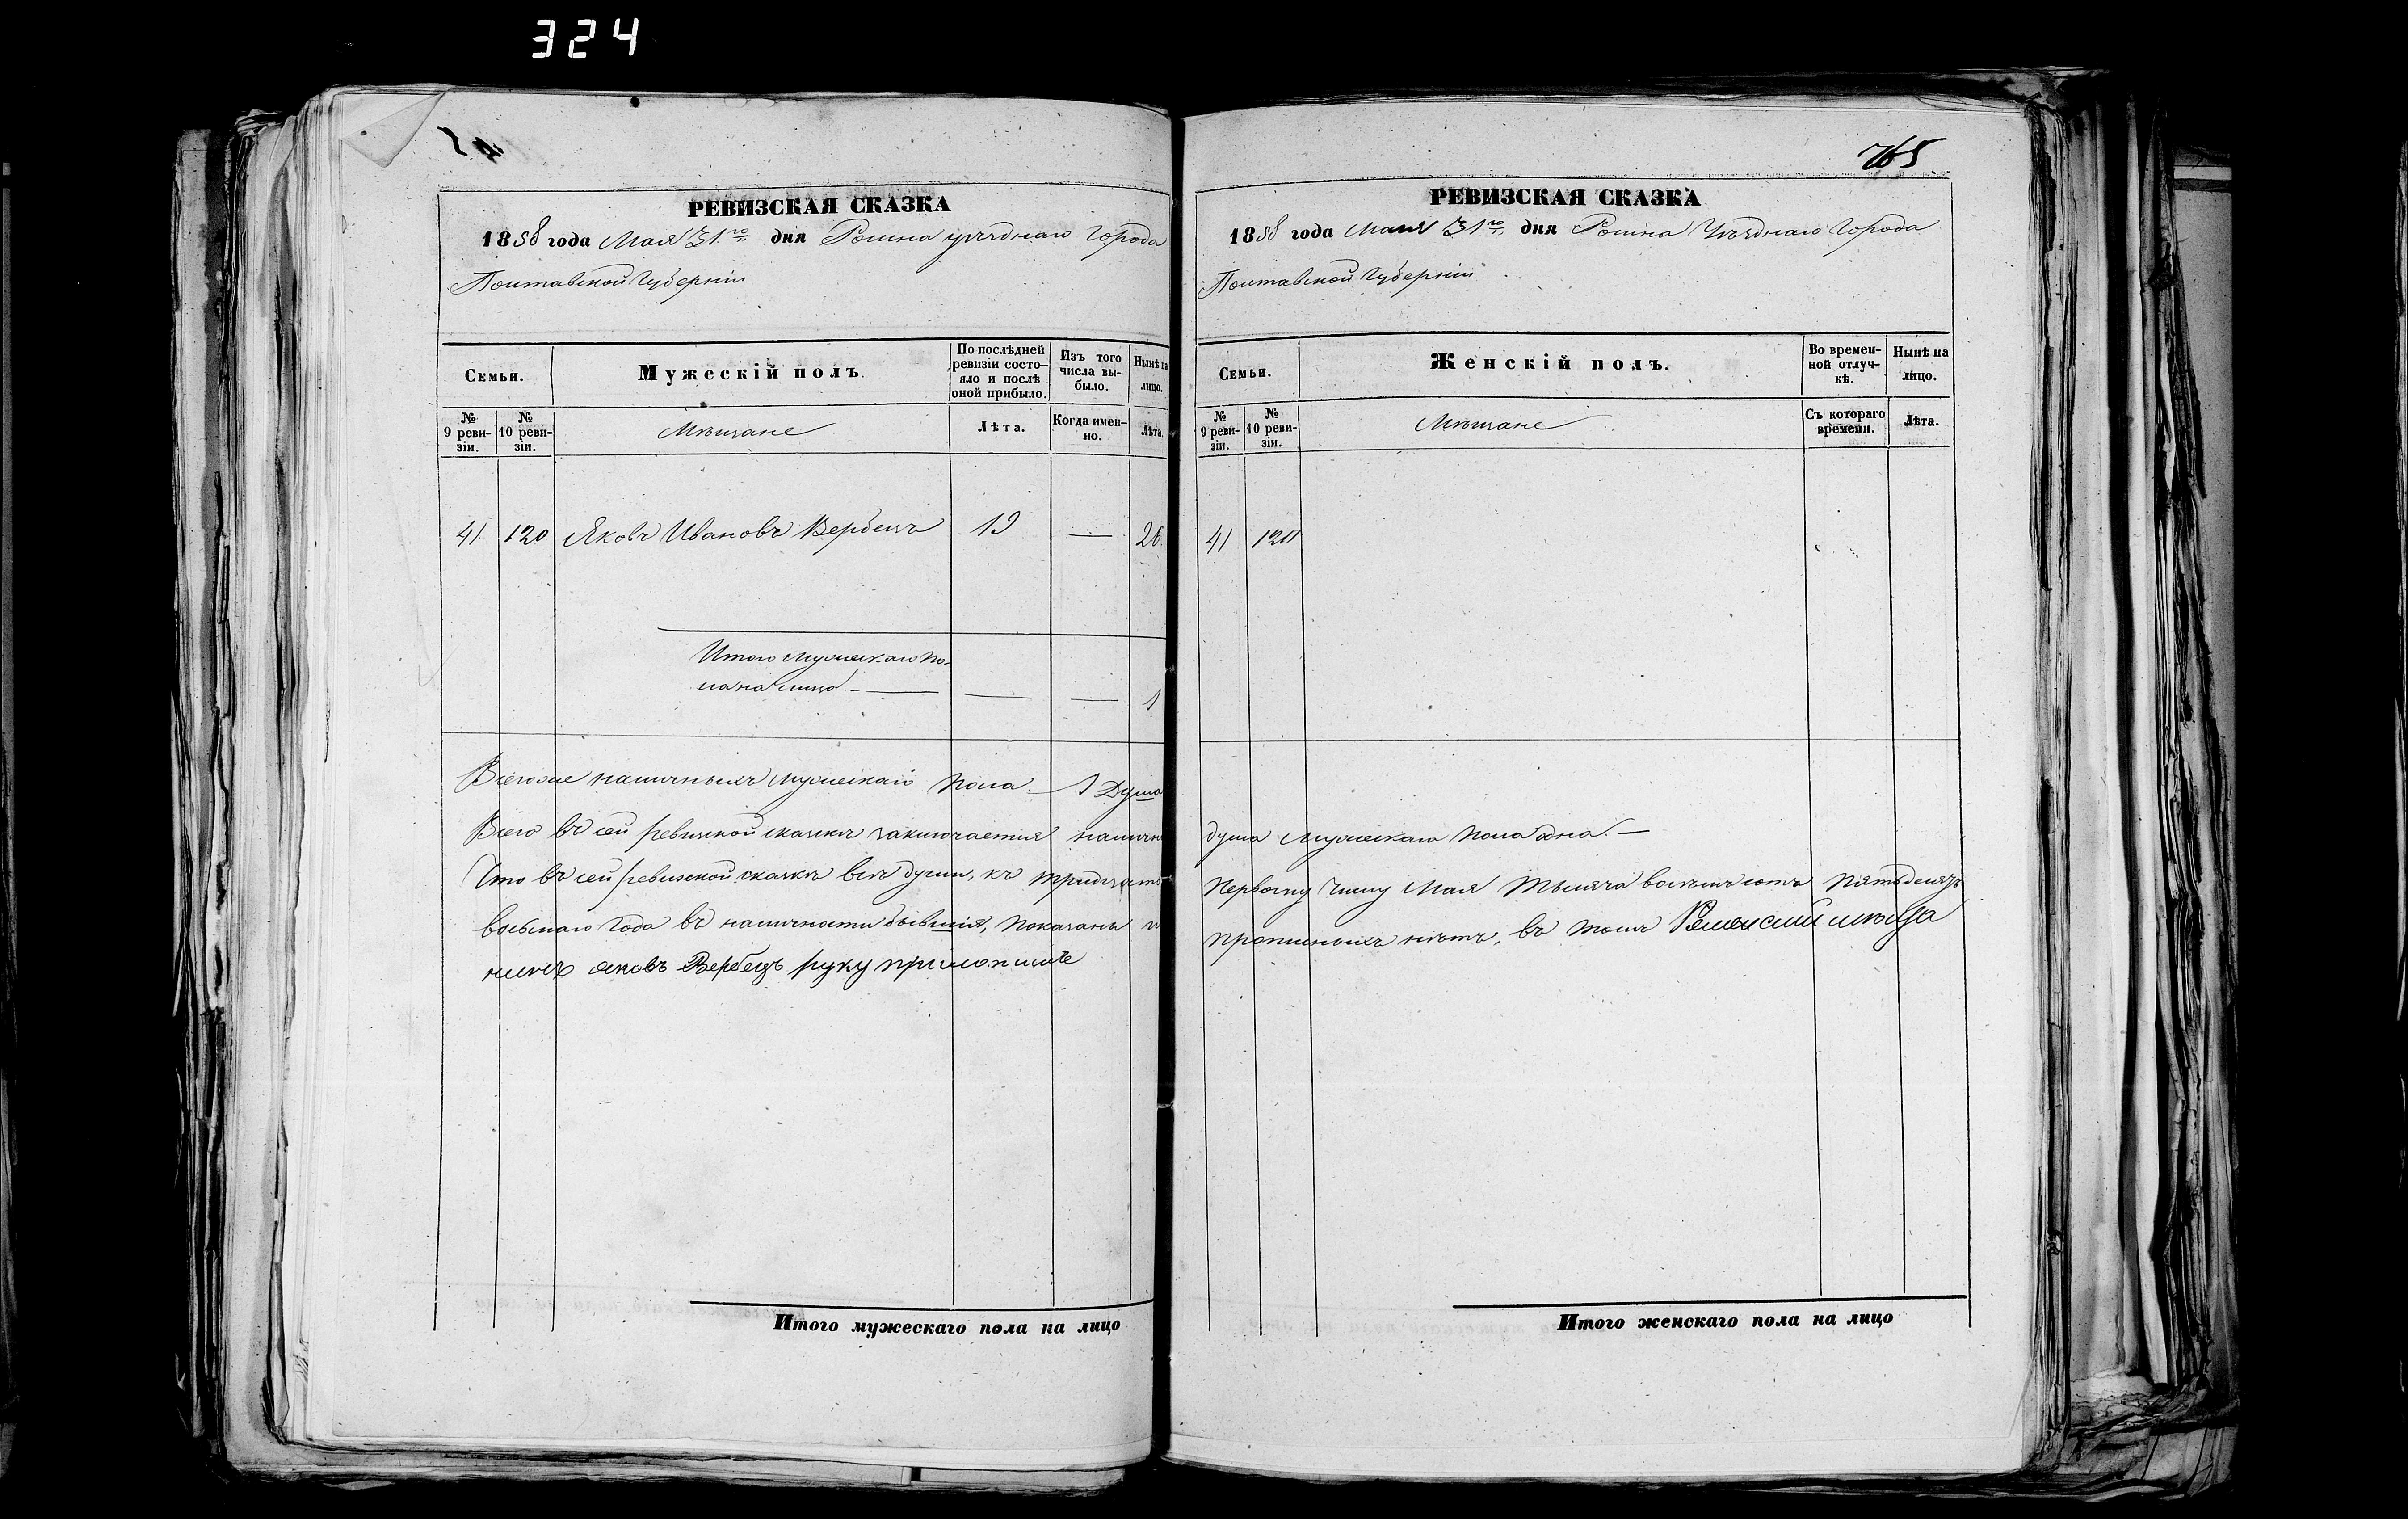 324
РЕВИЗСКАЯ СКАЗКА
1858 года Мая 31го дня Ромна уѣзднаго Города
Полтавской Губерніи
Семьи.
Мужескій полъ.
По послѣдней ревизіи состояло и послѣ оной прибыло.
Изъ того числа выбыло.
Нынѣ на лицо.
№ 9 ревизіи.
№ 10 ревизіи.
Мѣщане
Лѣта.
Когда именно.
Лѣта.
41 120 Яковъ Ивановъ Вербецъ 19 — 26
Итого мужескаго по-
ла на лицо. — — — 1
Всего же наличныхъ мужескаго пола — 1 Душа
Всего въ сей ревизской сказкѣ заключается налична
Что въ сей ревизской сказкѣ всѣ души, къ тридцать
восьмаго года въ наличности бывшія, показаны и
нинъ яковъ Вербецъ руку приложилъ
Итого мужескаго пола на лицо
765
РЕВИЗСКАЯ СКАЗКА
1858 года Мая 31го дня Ромна Уѣзднаго Города
Полтавской Губерніи
Семьи.
Женскій полъ.
Во временной отлучкѣ.
Нынѣ на лицо.
№ 9 ревизіи.
№ 10 ревизіи.
Мѣщане
Съ котораго времени.
Лѣта.
41 120
душа мужескаго пола одна. —
первому числу Мая тысяча восемьсотъ пятьдесятъ
прописныхъ нѣтъ, въ томъ Роменский мѣща
Итого женскаго пола на лицо